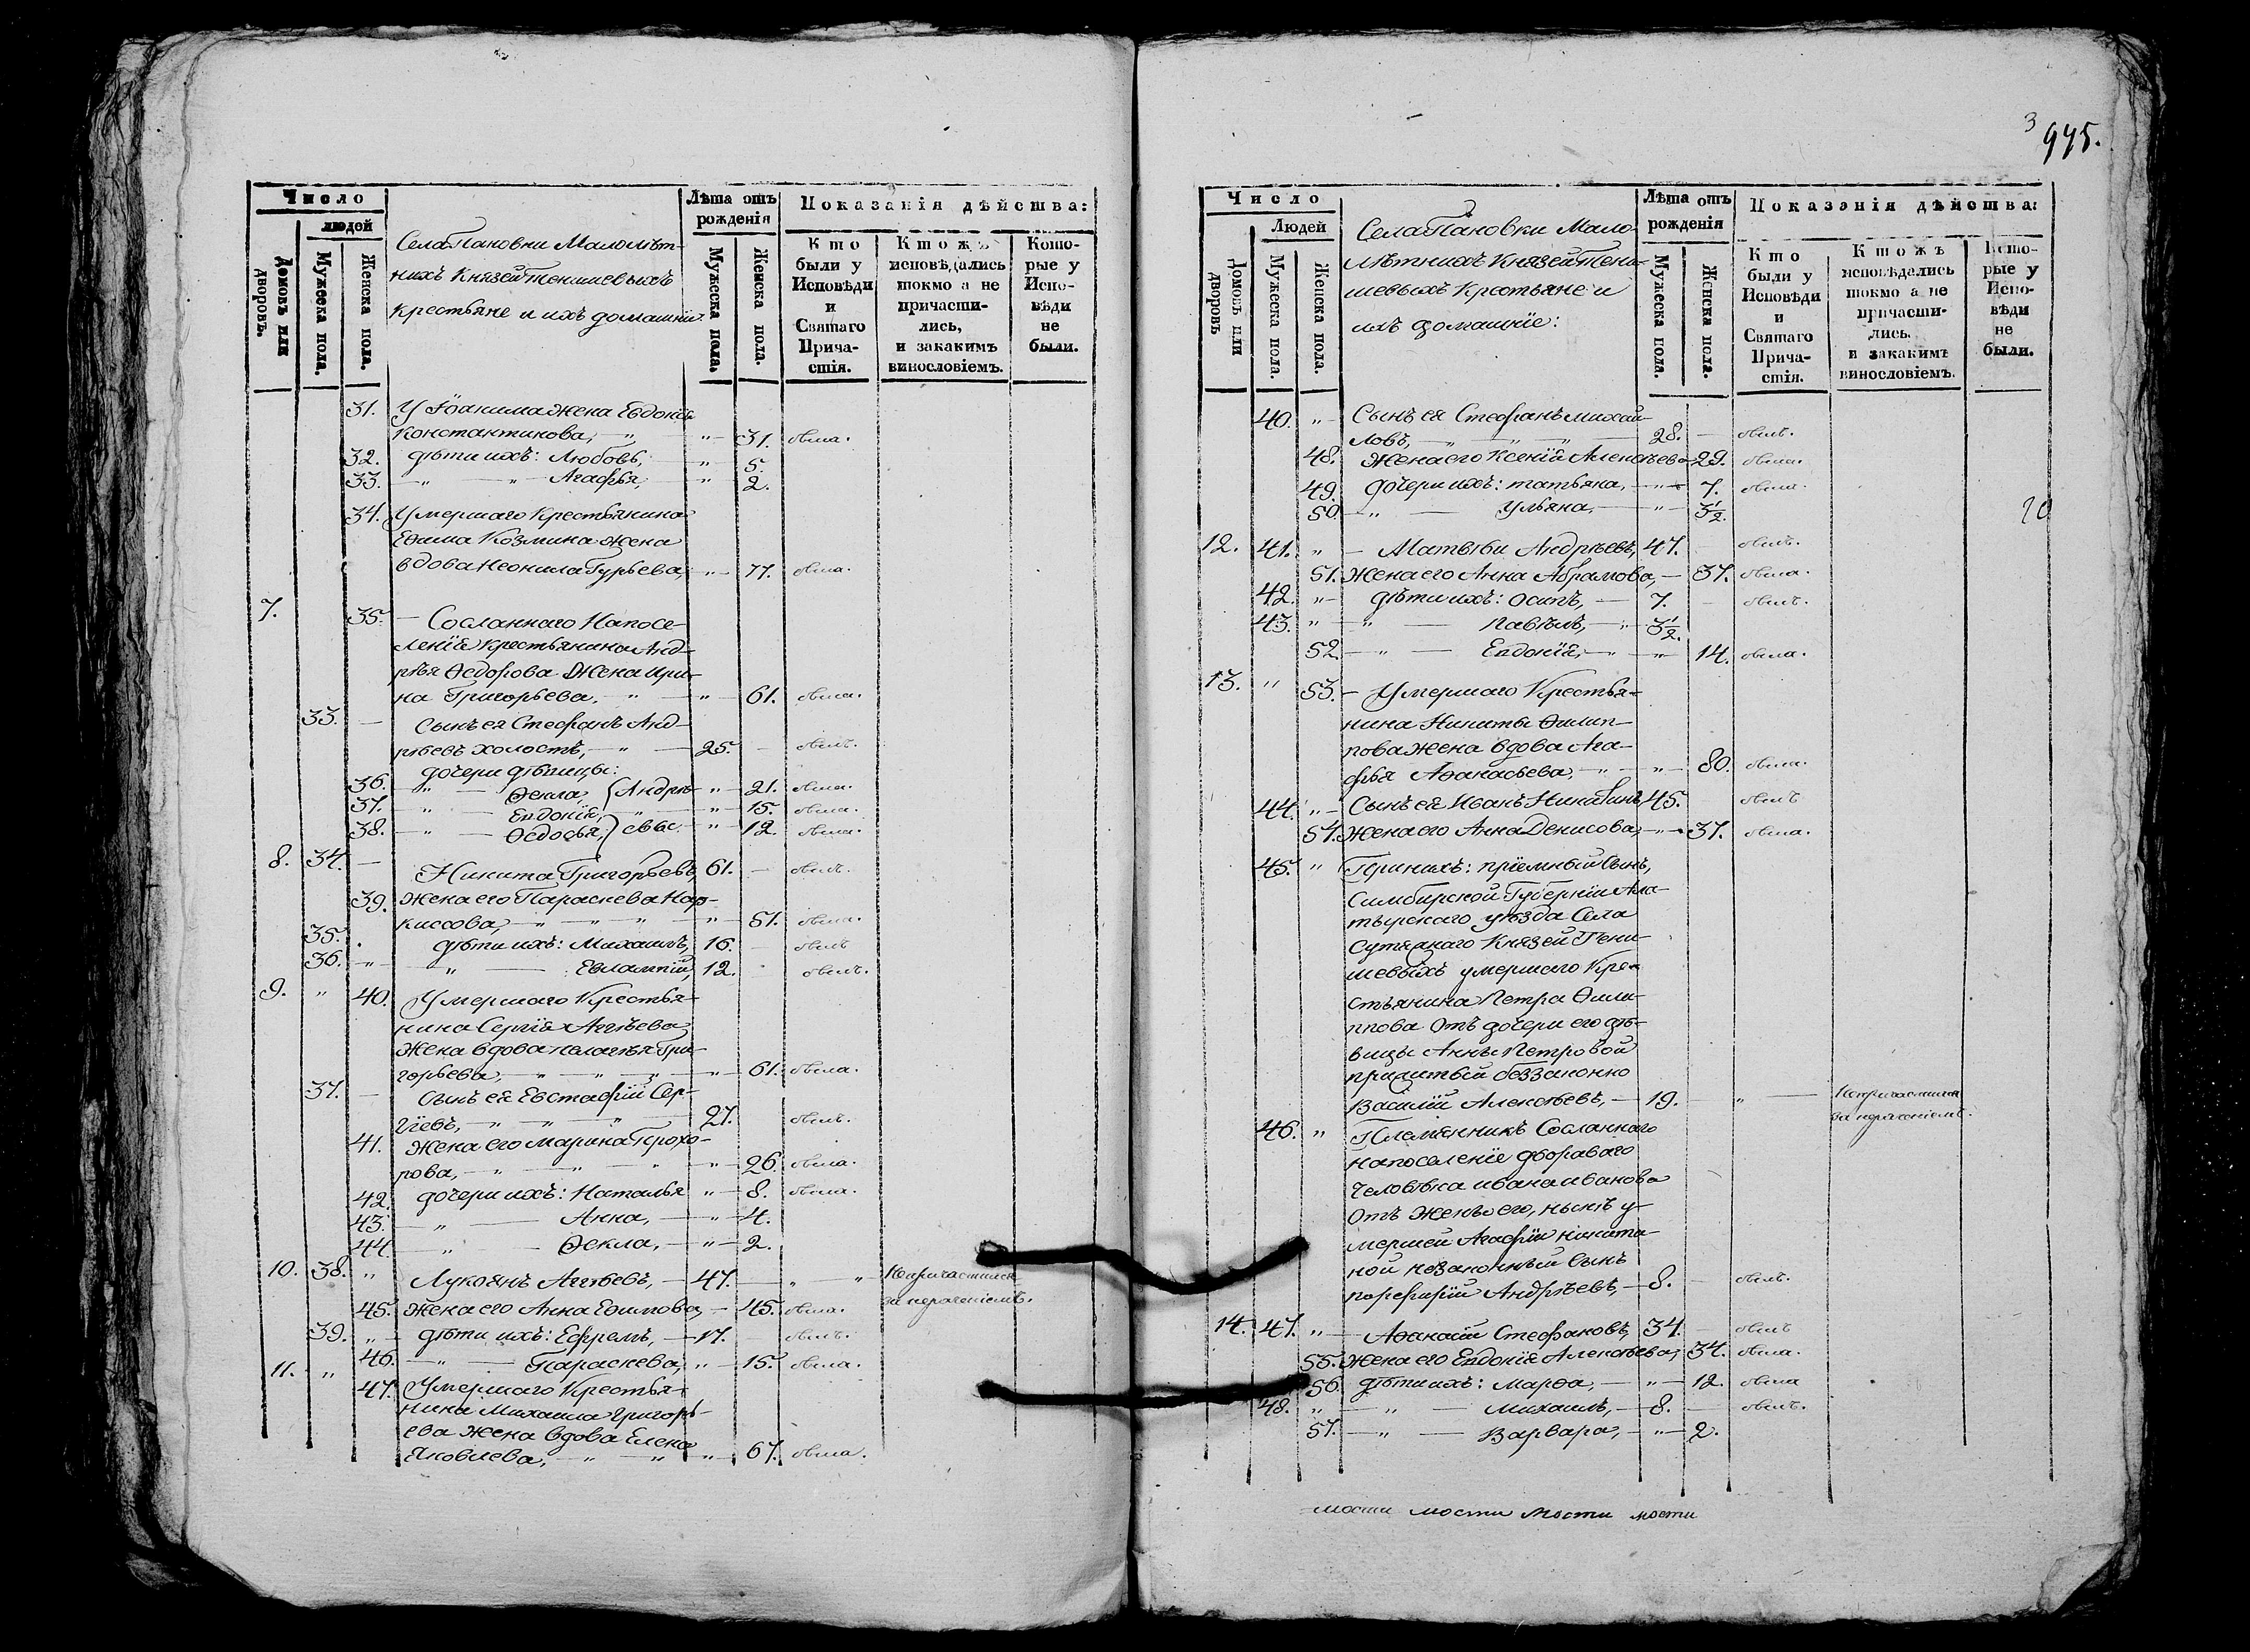 Число
людей
Домовъ или дворовъ.
Мужеска пола.
Женска пола.
Села Пановки Малолѣт-
нихъ Князей Тенишевыхъ
Крестьяне и ихъ домашнїи
Лѣта отъ рожденія
Мужеска пола.
Женска пола.
Показанія дѣйства:
Кто были у Исповѣди и Святаго Прича-стія.
Кто жъ исповѣдались токмо а не причасти-лись, и закакимъ винословіемъ.
Кото-рые у Испо-вѣди не были.
31. У Іоакима жена Евдокїя
Константинова, " " 31. была.
32. дѣти ихъ: Любовь, " 5.
33. " " Агафья, " 2.
34. Умершаго Крестьянина
Ефима Козмина жена
вдова Неонила Гурьева, " 77. была.
7. 35. Сосланнаго Напосе-
ленїе крестьянина Анд-
рѣя Ѳедорова Жена Ири-
на Григорьева, " " 61. была.
33. Сынъ ея Стефанъ Анд-
рѣевъ холостъ, " 25. былъ.
дочери дѣвицы:
36. " Ѳекла, Андрѣ- " 21. была.
37. " Евдокїя, " " 15. была.
38. " Ѳедосья, евы. " 12. была.
8. 34. Никита Григорьевъ 61. былъ.
39. Жена его Параскева Нар-
киссова, " " " " 51. была.
35. дѣти ихъ: Михаилъ, 16. былъ
36. " " Евлампїй, 12. былъ.
9. " 40. Умершаго Крестья-
нина Сергїя Аггѣева
Жена вдова Пелагѣя Гри-
горьева, " " " " 61. была.
37. Сынъ ея Евстафїй Сер-
гїевъ, " " " 27. былъ.
41. Жена его Марина Прохо-
рова, " " " " 26. была.
42. дочери ихъ: Наталья " 8. была.
43. " Анна, " 4.
44. " Ѳекла, " 2.
10. 38. " Лукоянъ Аггѣевъ, 47. " " Непричастился
45. Жена его Анна Ефимова, 45. была. за нераченїемъ.
39. " дѣти ихъ: Ефремъ, 17. былъ.
46. " Параскева, " 15. была.
11. " 47. Умершаго Крестья-
нина Михаила Григорь-
ева жена вдова Елена
Яковлева, " " " 67. была.
3
945.
Число
Людей
Домовъ или дворовъ
Мужеска пола.
Женска пола.
Села Пановки Мало-
лѣтнихъ Князей Тени-
шевыхъ Крестьяне и
ихъ домашнїе:
Лѣта отъ рожденія
Мужеска пола.
Женска пола.
Показанія дѣйства:
Кто были у Исповѣди и Святаго Прича-стія.
Кто жъ исповѣдались токмо а не причасти-лись. и закакимъ винословіемъ.
Кото-рые у Испо-вѣди не были.
40. " Сынъ ея Стефанъ Михай-
ловъ, " " " 28. былъ.
48. Жена его Ксенїя Алексѣева 29. была.
49. дочери ихъ: Татьяна, " 7. была.
50. " Ульяна, " 3½.
12. 41. " Матвѣй Андрѣевъ, 47. былъ.
51. Жена его Анна Абрамова, 37. была.
42. " дѣти ихъ: Осипъ, 7. былъ.
43. " " Павелъ, " 3½.
52. " Евдокїя, " " 14. была.
13. " 53. Умершаго Крестья-
нина Никиты Филип-
пова жена вдова Ага-
фья Афанасьева, " " 80. была.
44. " Сынъ ея Иванъ Никитинъ 45. былъ
54. Жена его Анна Денисова, " 37. была.
45. " При нихъ: прїемный Сынъ,
Симбирской Губернїи Ала-
тырскаго уѣзда Села
Сутяжнаго Князей Тени-
шевыхъ умершаго Кре-
стьянина Петра Фили-
ппова Отъ дочери его дѣ-
вицы Анны Петровой
прижитый беззаконно
Василїй Алексѣевъ, 19. " Непричастился
за нераченїемъ.
46. " Племянникъ Сосланнаго
напоселенїе двороваго
Человѣка Ивана Иванова
Отъ Жены его, нынѣ у-
мершей Агафїи Никити-
ной незаконный Сынъ
Порфирїй Андрѣевъ, 8. былъ.
14. 47. " Афанасїй Стефановъ, 34. былъ
55. Жена его Евдокїя Алексѣева, 34. была.
56. дѣти ихъ: Марфа, " 12. была
48. " " Михаилъ, 8. былъ.
57. " Варвара, " 2.
мости мости мости мости